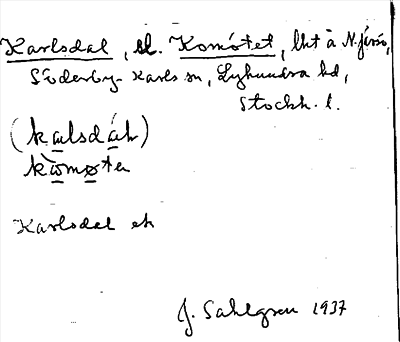 Karlsdal, el. Komötet, lht å N. järsö,
Söderby-Karls sn, Lyhundra hd,
Stockh. l.
(kalsdáh)
kωmøtə
Karlsdal ek
J. Sahlgren 1937